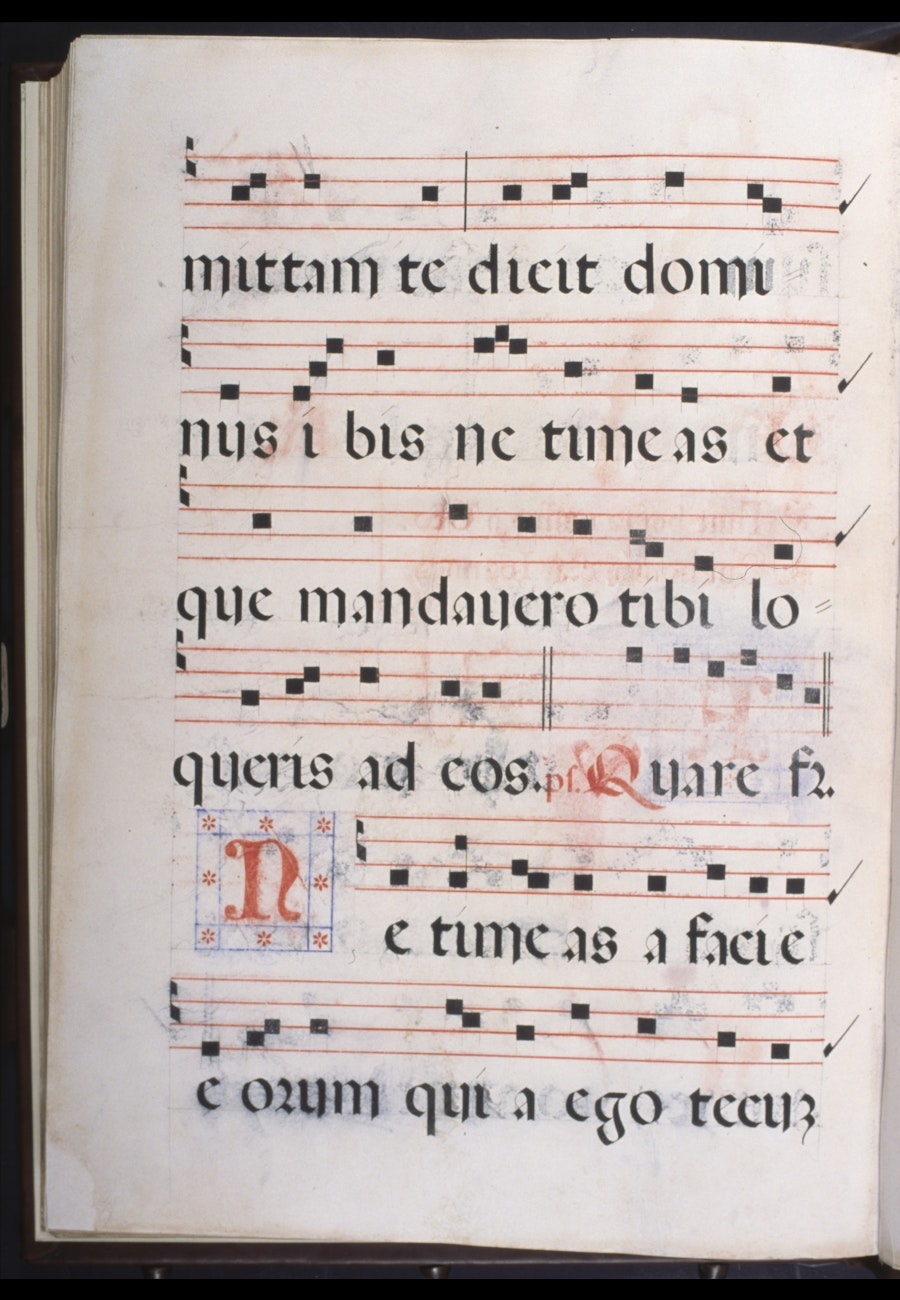 mittam te dicit domi
nus i bis ne time as et
que mandavero tibi lo =
queris ad eos. ps. Quare fr.
Ne time as a facie
e orum qui a ego tecuz